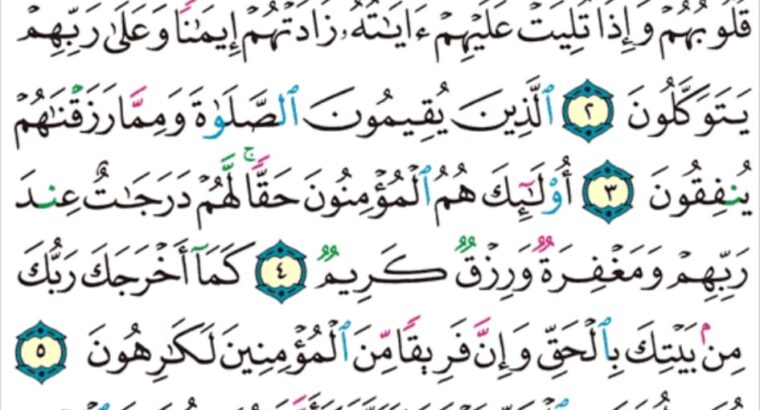 قُلُوبُهُمْ وَإِذَا تُلِيَتْ عَلَيْهِمْ ءَايَٰتُهُۥ زَادَتْهُمْ إِيمَٰنًا وَعَلَىٰ رَبِّهِمْ
يَتَوَكَّلُونَ ٢ ٱلَّذِينَ يُقِيمُونَ ٱلصَّلَوٰةَ وَمِمَّا رَزَقْنَٰهُمْ
يُنفِقُونَ ٣ أُو۟لَٰٓئِكَ هُمُ ٱلْمُؤْمِنُونَ حَقًّا ۚ لَّهُمْ دَرَجَٰتٌ عِندَ
رَبِّهِمْ وَمَغْفِرَةٌ وَرِزْقٌ كَرِيمٌ ٤ كَمَآ أَخْرَجَكَ رَبُّكَ
مِنۢ بَيْتِكَ بِٱلْحَقِّ وَإِنَّ فَرِيقًا مِّنَ ٱلْمُؤْمِنِينَ لَكَٰرِهُونَ ٥